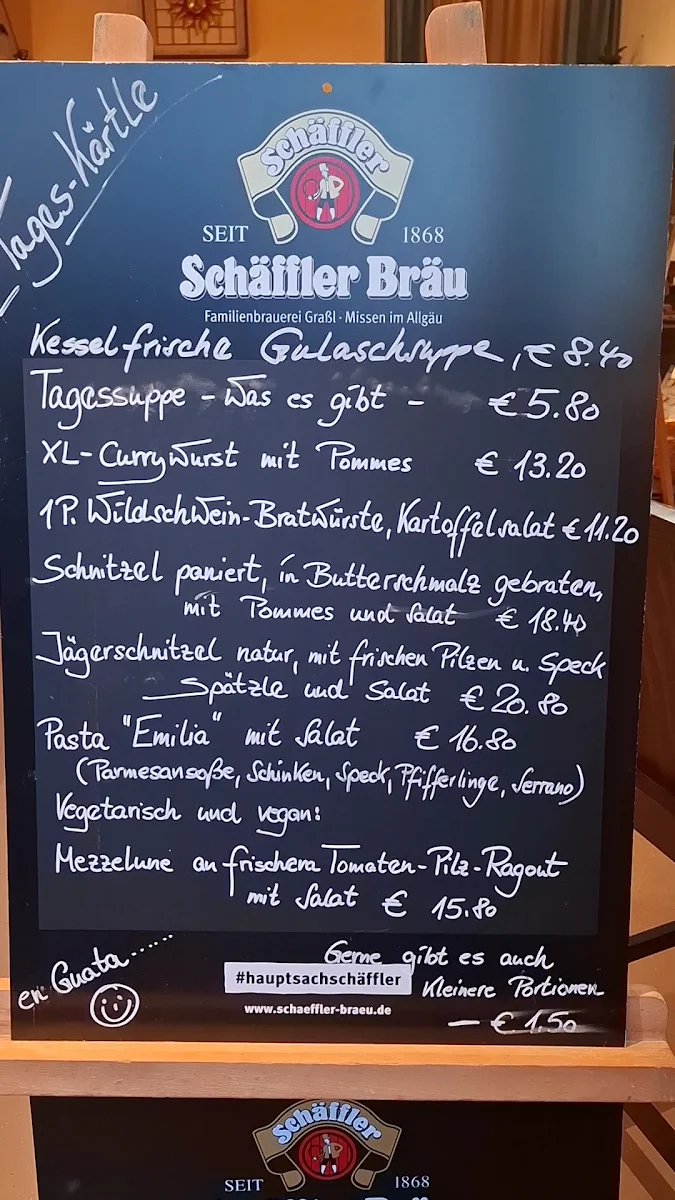 Tages-Kärtle
Schäffler
SEIT 1868
Schäffler Bräu
Familienbrauerei Graßl · Missen im Allgäu
Kesselfrische Gulaschsuppe, € 8.40
Tagessuppe - Was es gibt - € 5.80
XL-Currywurst mit Pommes € 13.20
1P. Wildschwein-Bratwürste, Kartoffelsalat € 11.20
Schnitzel paniert, in Butterschmalz gebraten,
mit Pommes und Salat € 18.40
Jägerschnitzel natur, mit frischen Pilzen u. Speck
Spätzle und Salat € 20.80
Pasta "Emilia" mit Salat € 16.80
(Parmesansoße, Schinken, Speck, Pfifferlinge, Serrano)
Vegetarisch und vegan:
Mezzelune an frischem Tomaten-Pilz-Ragout
mit Salat € 15.80
en Guata......
Gerne gibt es auch
kleinere Portionen
- € 1.50
#hauptsachschäffler
www.schaeffler-braeu.de
Schäffler
SEIT 1868